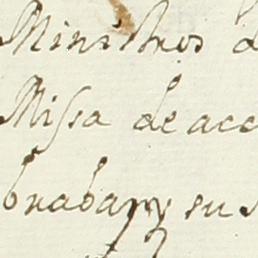 Ministros d
Missa de acc
su